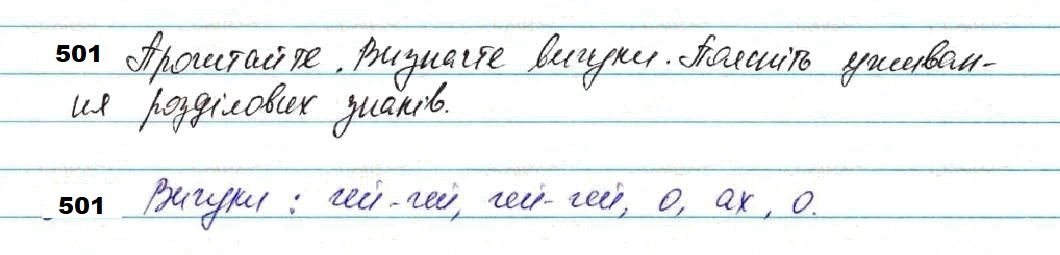 501 Прочитайте. Визначте вигуки. Поясніть уживан-
ня розділових знаків.
501 Вигуки: гей-гей, гей-гей, о, ах, о.